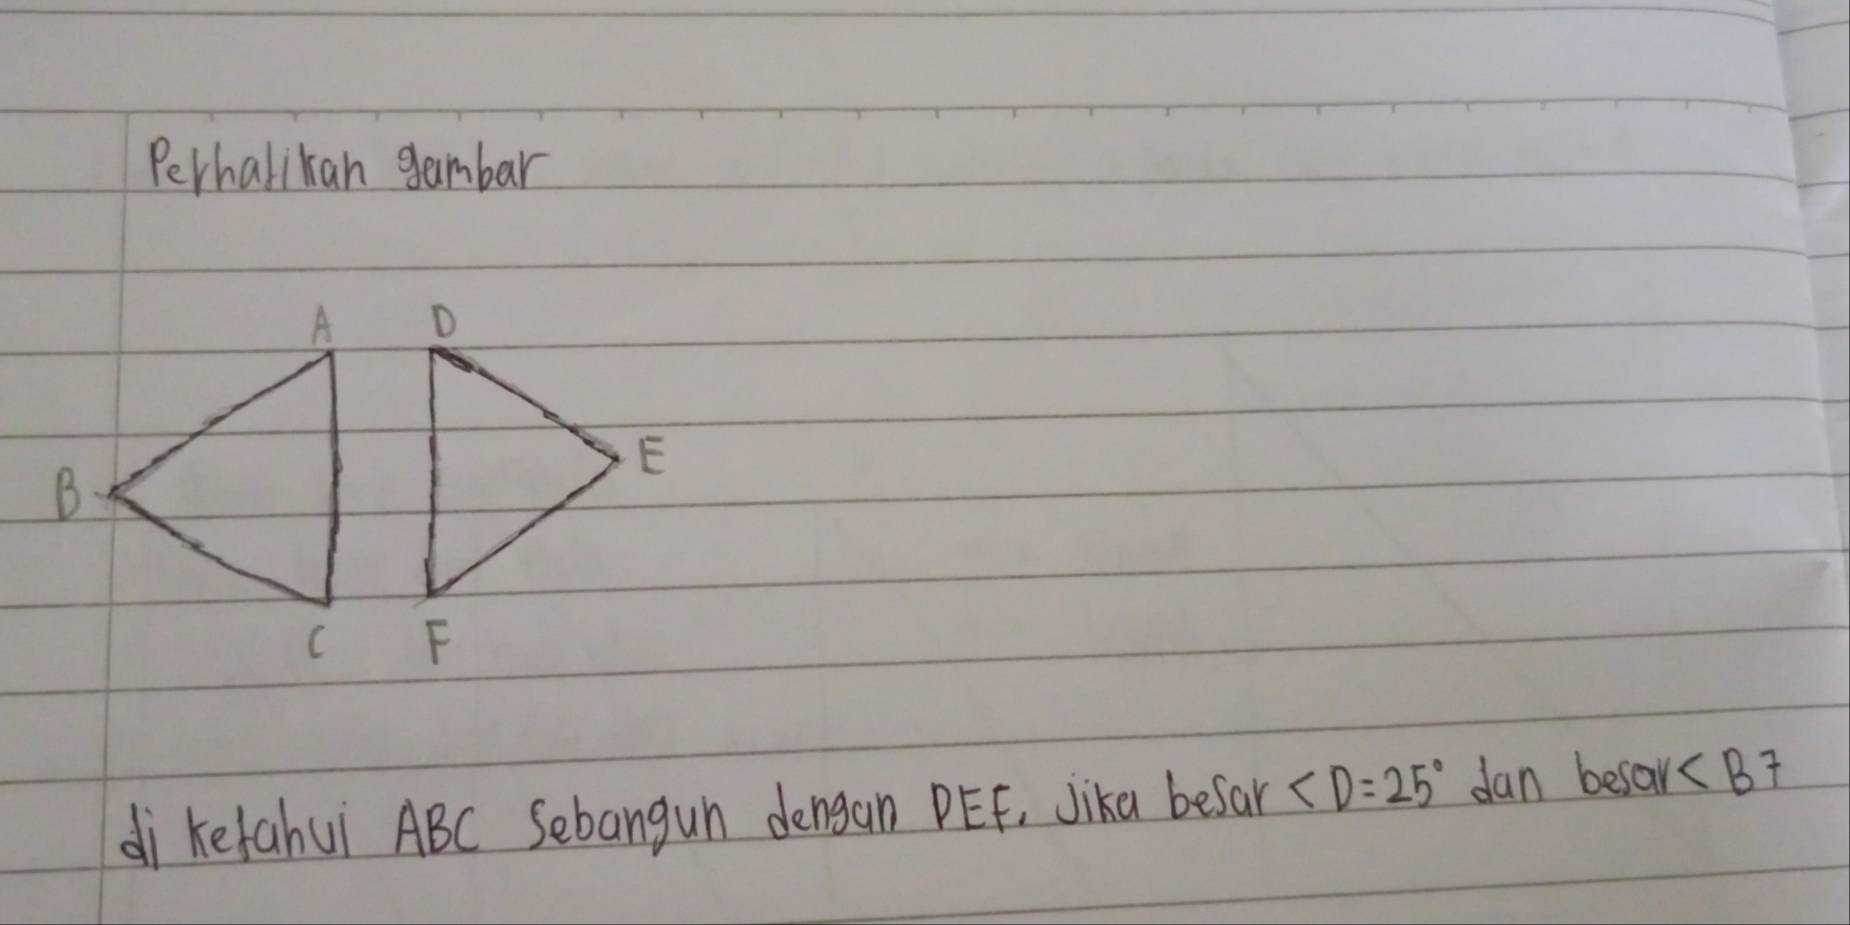 Perhatikan gambar
A D
B E
C F
di ketahui ABC Sebangun dengan DEF. Jika besar < D = 25° dan besar < B ?